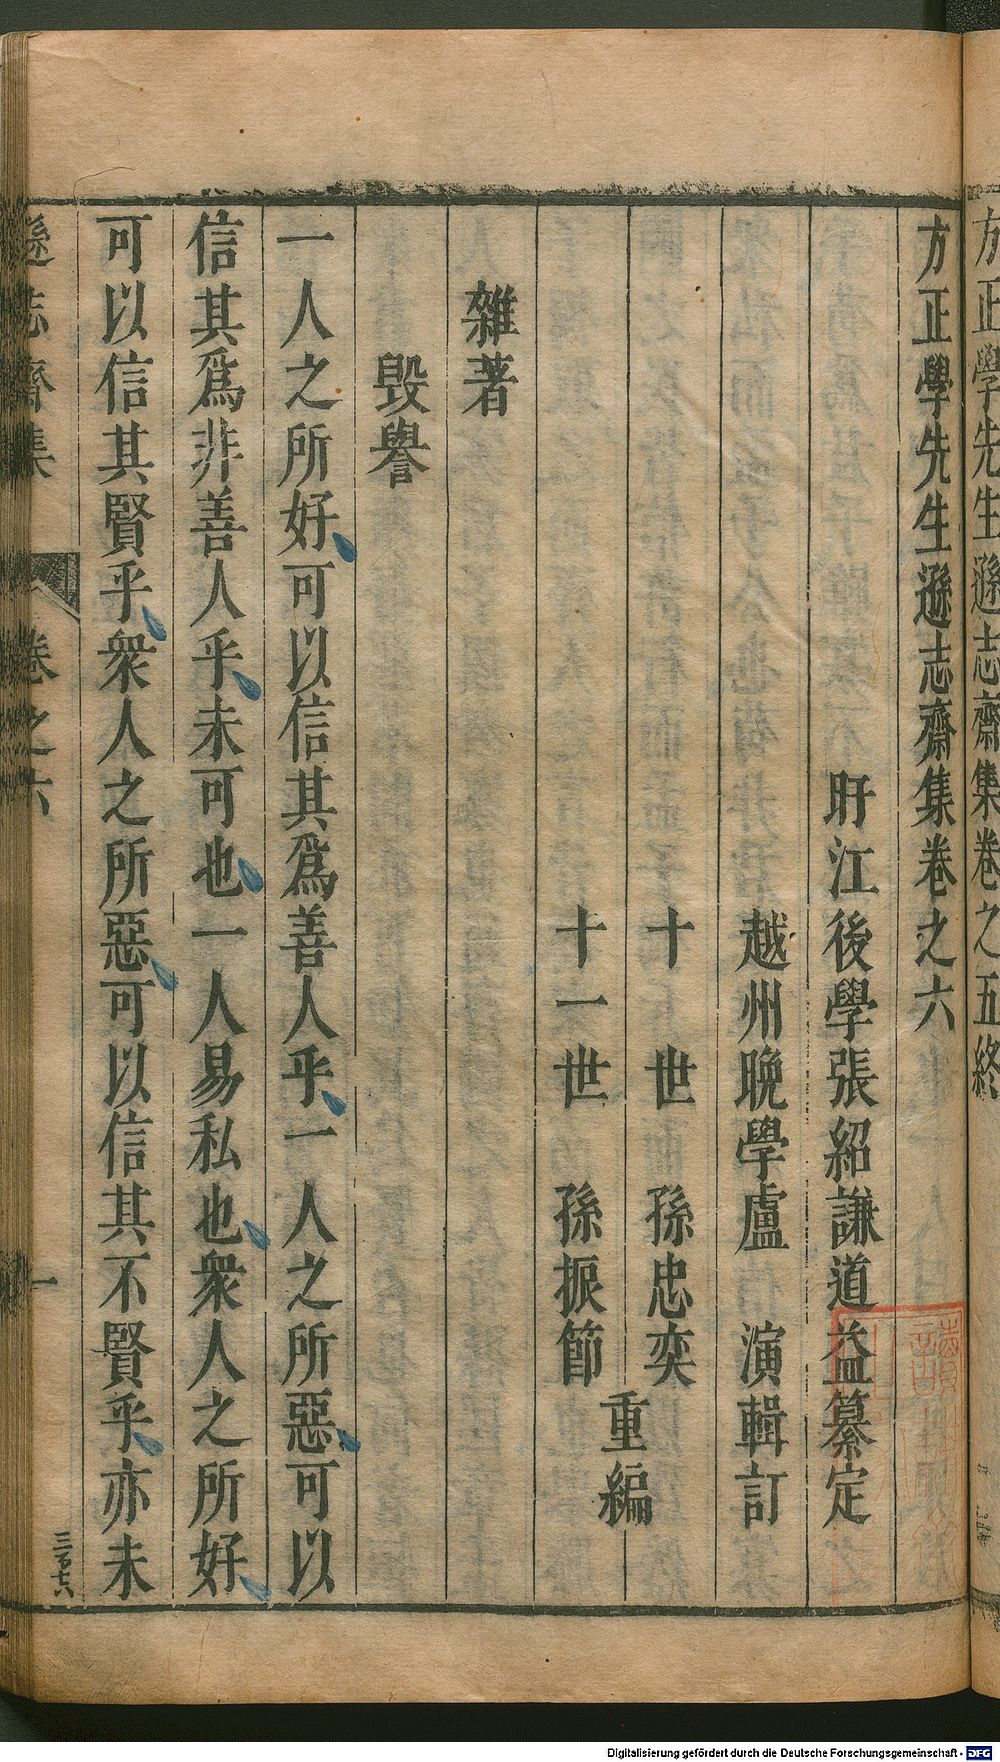 方正學先生遜志齋集卷之五終
方正學先生遜志齋集卷之六
盱江後學張紹謙道益纂定
越州晚學盧演輯訂
十世孫忠奕
十一世孫振節
重編
雜著
毀譽
一人之所好可以信其爲善人乎一人之所惡可以
信其爲非善人乎未可也一人易私也衆人之所好
可以信其賢乎衆人之所惡可以信其不賢乎亦未
遜志齋集
卷之六
一
三百七六
Digitalisierung gefördert durch die Deutsche Forschungsgemeinschaft - DFG